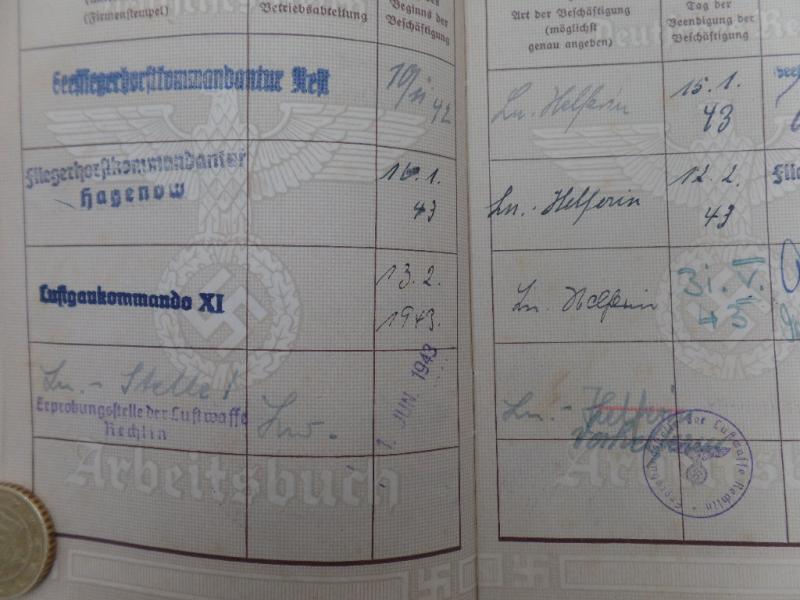 (Firmenstempel)
Betriebsabteilung
Beginns der
Beschäftigung
Art der Beschäftigung
(möglichst
genau angeben)
Tag der
Beendigung der
Beschäftigung
Seefliegerhorstkommandantur
42
Ln. Helferin
15. 1.
43
Fliegerhorstkommandantur
Hagenow
16. 1.
43
Ln.- Helferin
12. 2.
43
Luftgaukommando XI
13. 2.
1943.
Ln. Helferin
31. V.
Ln.- Stelle
Erprobungsstelle der Luftwaffe
Rechlin
1. JUN. 1943
Ln.-
Erprobungsstelle der Luftwaffe Rechlin
Arbeitsbuch